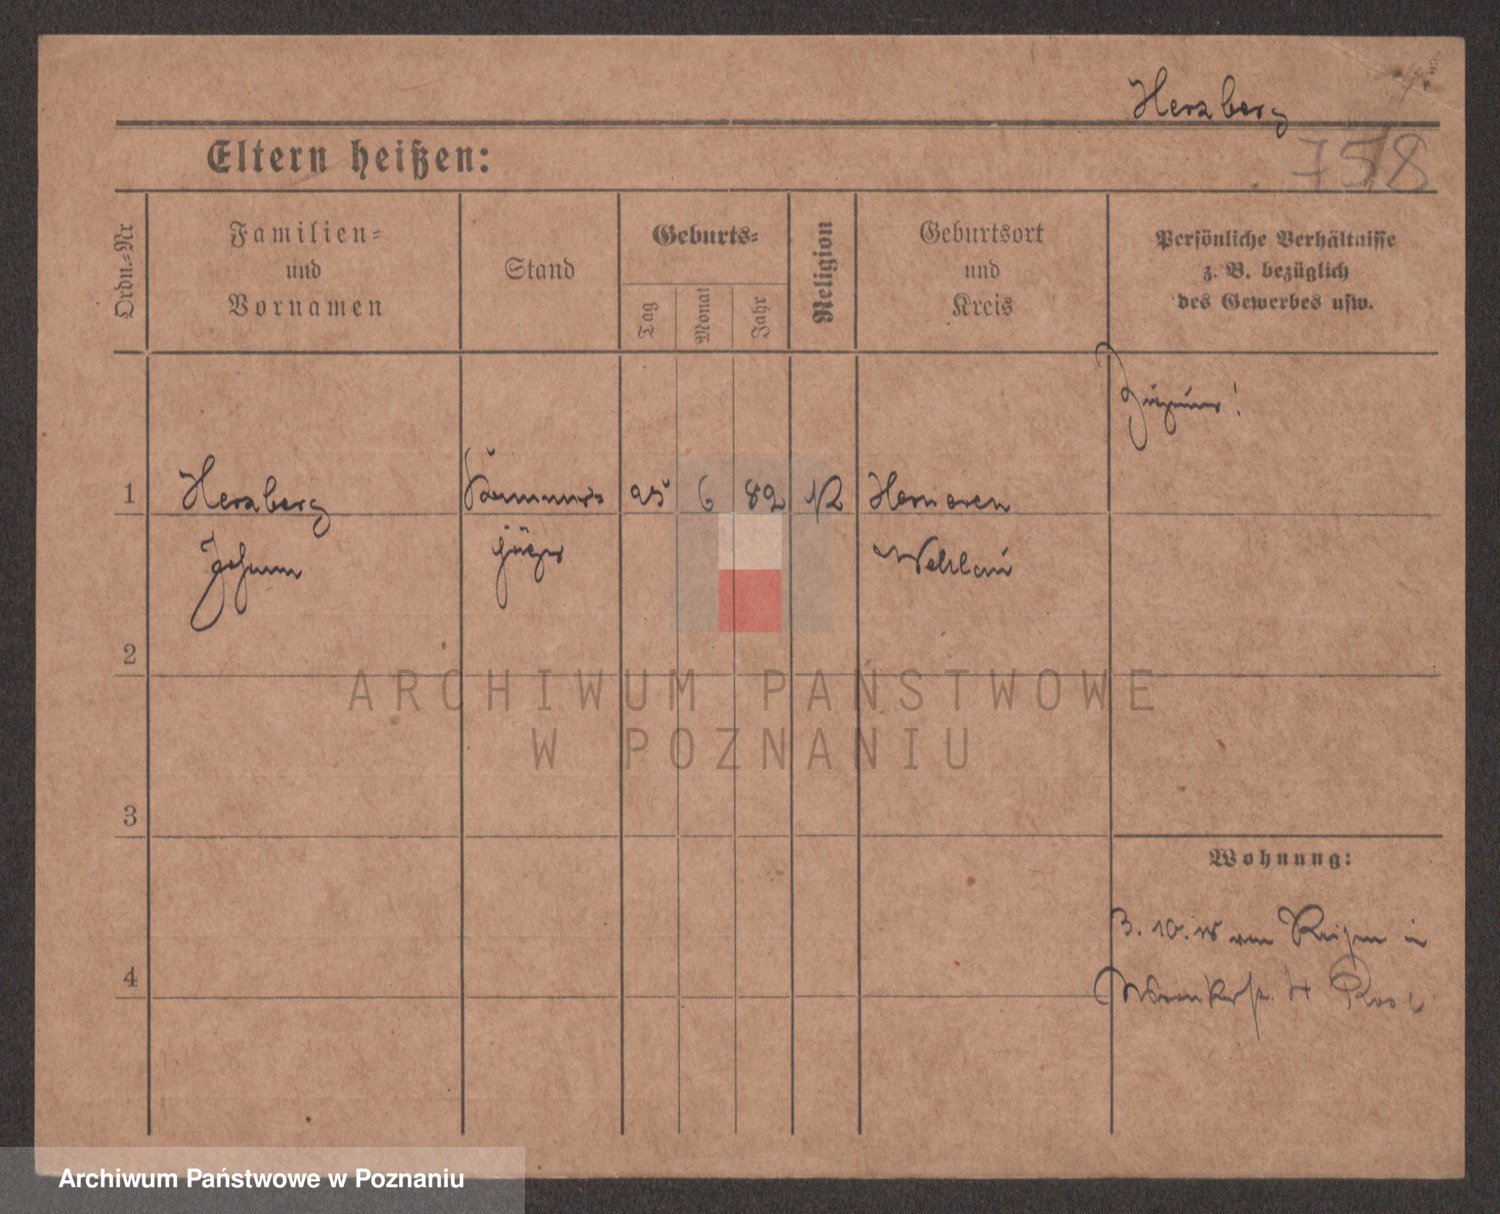 Herzberg
758
Eltern heißen:
Ordn.-Nr
Familien-
und
Vornamen
Stand
Geburts-
Tag
Monat
Jahr
Religion
Geburtsort
und
Kreis
Persönliche Verhältnisse
z. B. bezüglich
des Gewerbes usw.
1
Herzberg
25
6
82
Johann
jäger
Wehlau
2
3
Wohnung:
3. 10. in
4
ARCHIWUM PAŃSTWOWE
W POZNANIU
Archiwum Państwowe w Poznaniu